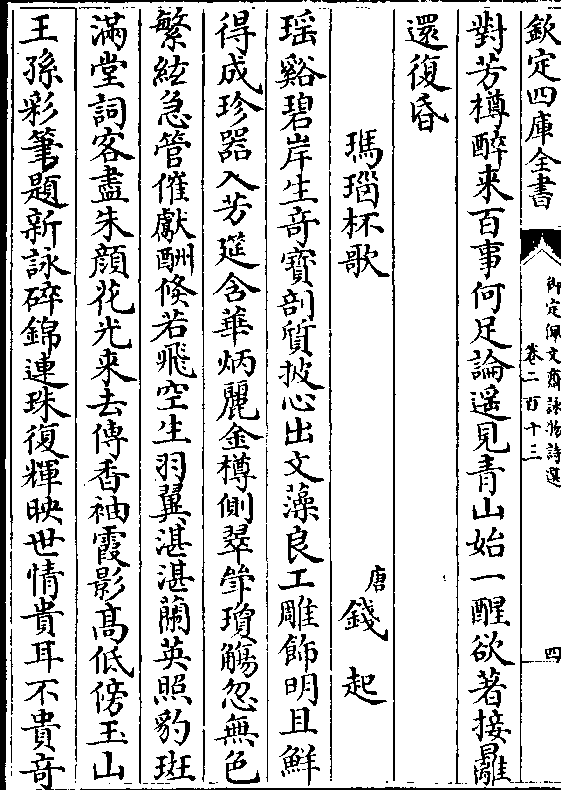 欽定四庫全書
御定佩文齋詠物詩選
卷二百十三
四
對芳樽醉来百事何足論遥見青山始一醒欲著接䍦
還復昏
瑪瑙杯歌
唐
錢起
瑶谿碧岸生奇寶剖質披心出文藻良工雕飾明且鮮
得成珍器入芳筵含華炳麗金樽側翠斝瓊觴忽無色
繁絃急管催獻酬倐若飛空生羽翼湛湛蘭英照豹斑
滿堂詞客盡朱顔花光来去傳香袖霞影髙低傍玉山
王孫彩筆題新詠碎錦連珠復輝映世情貴耳不貴奇